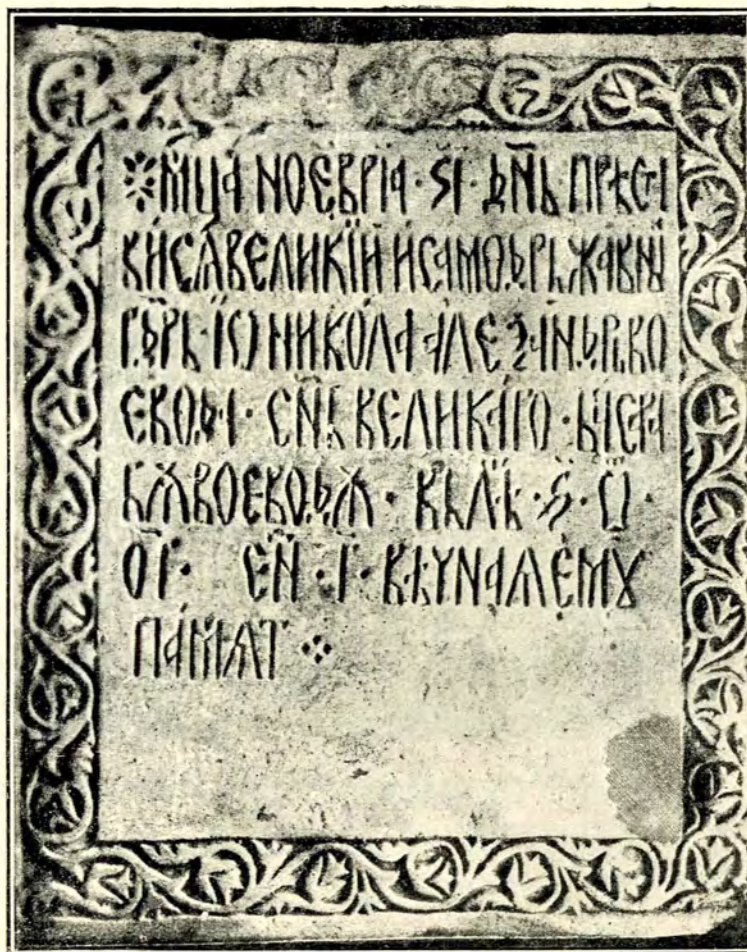 м҃ца ноеврїа · ѕ҃і · дн҃ь · прѣста
ви сѧ великїи и самодрьжавны
г҃дрь · іѡ никола алеѯандрь во
евода · сн҃ь великаго · басара
бѫ воеводѫ · въ лѣ · ѕ҃ · ѡ҃ ·
о҃г · ен · і҃ · вѣчнаѧ емꙋ
памѧт